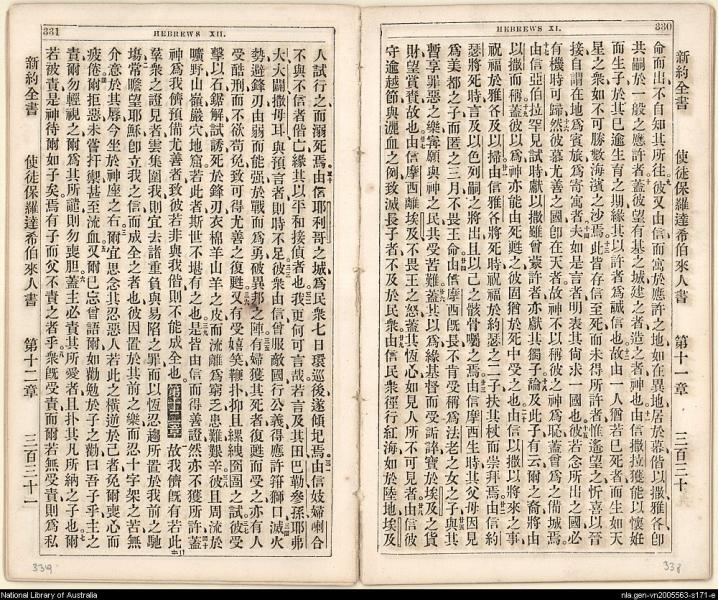 HEBREWS XI. 330
新約全書 使徒保羅達希伯來人書 第十一章 三百三十
命而出不自知其所往彼又由信而寓於應許之地如在異地居於幕偕以撒雅各卽
共嗣於一般之應許者蓋彼望有基之城建之者造之者神也由信撒拉獲能以懷妊
而生子於其已逾生育之期緣其以許者爲誠信也故由一人猶若已死者而生如天
星之衆如不可勝數海濱之沙焉此皆存信至死而未得所許者惟遙望之忻喜以晉
接自謂在地爲賓旅爲寄寓者夫如是言者明表其尚求一國也彼若念所出之國必
有機時可歸然彼慕尤善之國卽在天者故神不以稱彼之神爲恥蓋曾爲之備城焉
由信亞伯拉罕見試時獻以撒雖曾蒙許者亦獻其獨子論及此子有云爾之裔將由
以撒而稱蓋彼以爲神亦能由死甦之彼固猶於死中受之也由信以撒以將來之事
祝福於雅各及以掃由信雅各將死時祝福於約瑟之二子扶其杖而崇拜焉由信約
瑟將死時言及以色列嗣之將出且以己之骸骨囑之焉由信摩西生時其父母因見
爲美都之子而匿之三月不畏王命由信摩西旣長不肯受稱爲法老之女之子與其
暫享罪惡之樂寧願與神之民共受苦難蓋其以爲緣基督而受詬寶於埃及之貨
財望賞賚故也由信摩西離埃及不畏王之怒蓋其恆心如見人所不可見者由信彼
守逾越節與灑血之例致滅長子者不及於民衆由信民衆徑行紅海如於陸地埃及
338
331 HEBREWS XII.
人試行之而溺死焉由信耶利哥之城爲民衆七日環巡後遂傾圯焉由信妓婦喇合
不與不信者偕亡緣其以平和接偵者也我更何可言哉若言及其田巴勒參孫耶弗
大大闢撒母耳與預言者則時不足彼衆由信曾服敵國行公義得應許箝獅口滅火
勢避鋒刃由弱而能强於戰而爲勇破異邦之陣有婦獲其死者復甦而受之亦有人
受酷刑而不欲苟免致可得尤善之復甦又有受嬉笑鞭扑抑且縲絏囹圄之試彼受
擊以石鋸解試誘死於鋒刃衣棉羊山羊之皮而流離爲窮乏患難艱辛彼且周流於
曠野山嶺巖穴地窟若此者斯世不堪有之也是皆由信而得善證然亦不獲所許蓋
神爲我儕預備尤善者致彼若非與我偕則不能成全也 第十二章 故我儕旣有若此
羣衆之證見者雲集圍我則宜去諸重負與易陷之罪而以恆忍趨所置於我前之馳
塲常瞻望耶穌卽立我之信而成全之者也彼因置於其前之樂而忍十字架之苦無
介意於其辱今坐於神座之右爾宜思念其忍惡人若此之橫逆於己者免爾喪心而
疲倦爾拒惡未嘗扞禦甚至流血又爾已忘曾語爾如勸勉於子之勸曰吾子乎主之
責爾勿輕視之爾爲其所譴則勿喪胆蓋主必責其所愛者且扑其凡所納之子也爾
若被責是神待爾如子矣焉有子而父不責之者乎衆旣受責而爾若無受責則爲私
新約全書 使徒保羅達希伯來人書 第十二章 三百三十一
339
National Library of Australia
nla.gen-vn2005563-s171-e